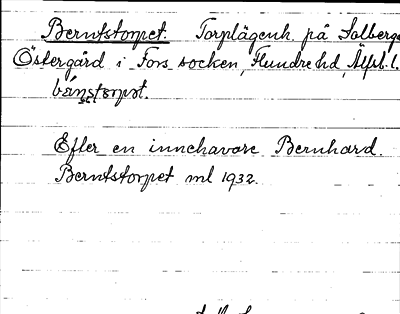 Berntstorpet. Torplägenh. på Solberga
Östergård i Fors socken, Flundre hd, Älfsb. l.
bǽnstorpət.
Efter en innehavare Bernhard.
Berntstorpet ml 1932.